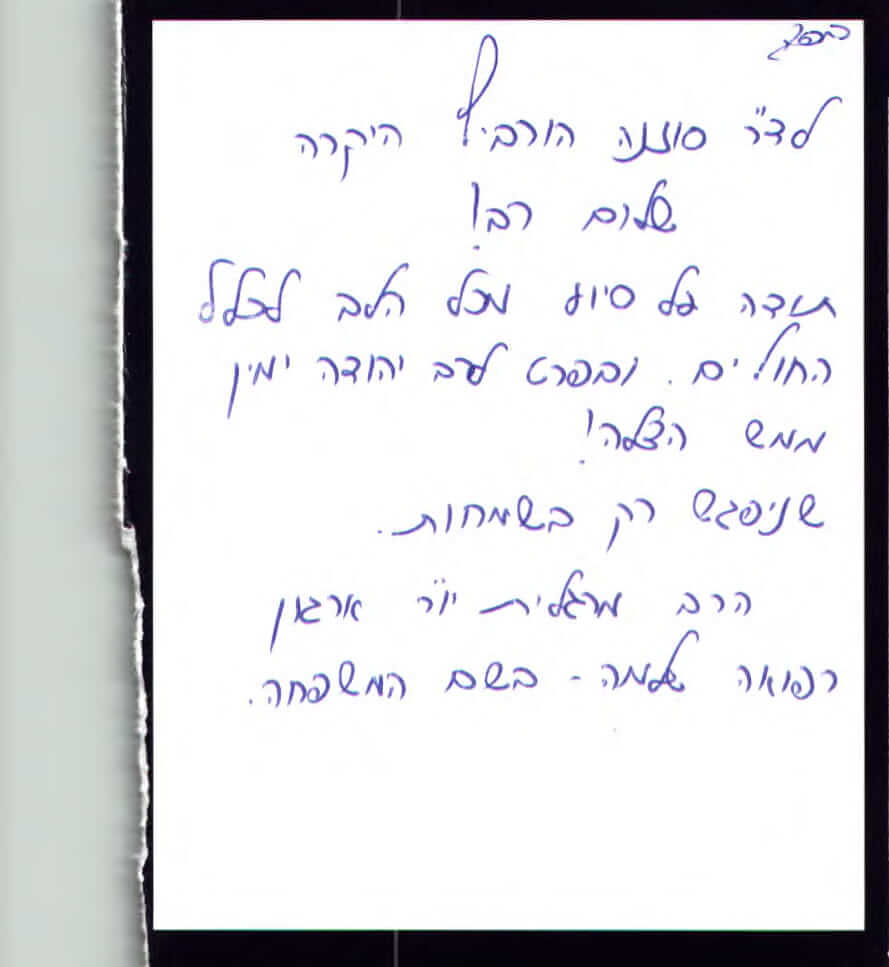 בס"ד
לד"ר סוזנה הורביץ היקרה
שלום רב!
תודה על סיוע מכל הלב לכלל
החולים. ובפרט לרב יהודה ימין
ממש הצלה!
שניפגש רק בשמחות.
הרב מרגלית יו"ר ארגון
רפואה שלמה - בשם המשפחה.